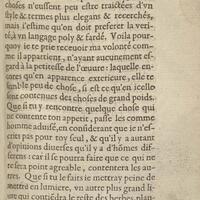 choses n'eussent peu estre traictées d'vn
style & termes plus elegans & recerchés,
mais i'estime qu'on doit preferer la veri-
té, à vn langage poly & fardé. Voila pour-
quoy ie te prie receuoir ma volonté com-
me il appartient, n'ayant aucunement es-
gard à la petitesse de l'œuure: laquelle en-
cores qu'en apparence exterieure, elle te
semble peu de chose, si est ce qu'en icelle
sont contenues des choses de grand poids.
Que si tu y rencontre quelque chose qui
ne contente ton appetit, passe les comme
homme aduisé, en considerant que ie n'es-
cris pas pour toy seul, & qu'il y a autant
d'opinions diuerses qu'il y a d'hômes dif-
ferens: car il se pourra faire que ce qui ne
te sera point agreable, contentera les au-
tres. Que si tu le fais ie mettray peine de
mettre en lumiere, vn autre plus grand li-
ure qui contiêdra le reste des herbes, plan-